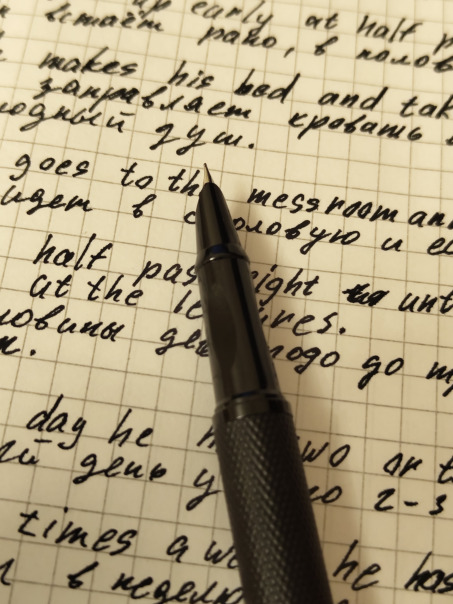 up early at half
встаёт рано, в полов
makes his bed and tak
заправляет кровать
лодный душ.
goes to the messroom and
идет в столовую и
half past eight unt
at the lectures.
ловины девятого до
day he has two or t
день у 2-3
times a week he has
в неделю